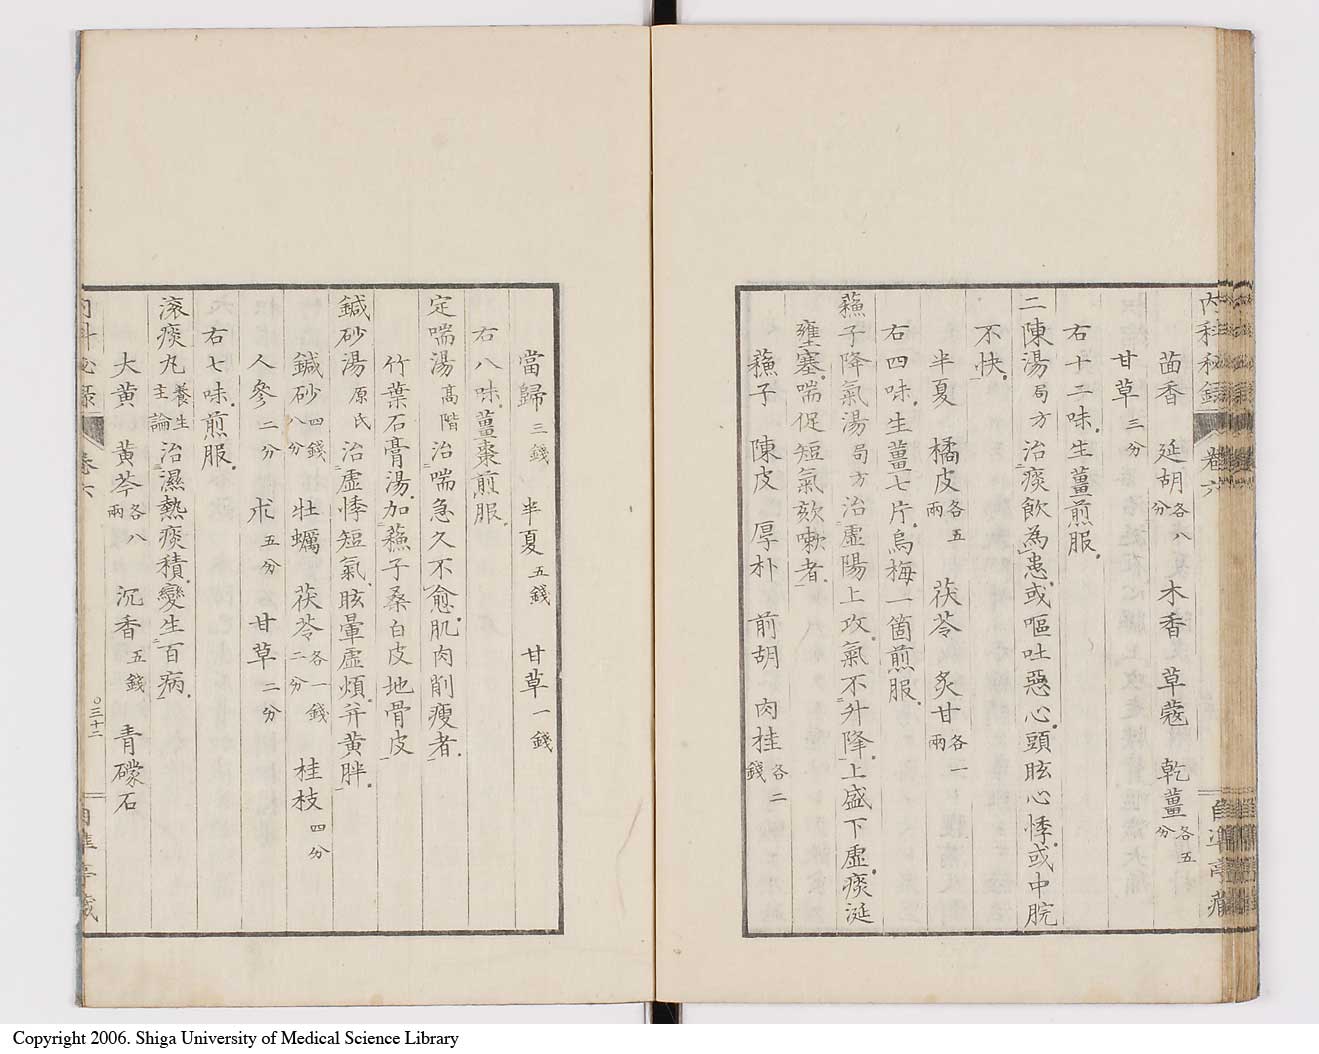 内科秘録 卷六 自準亭藏
茴香 延胡各八分 木香 草蔻 乾薑各五分
甘草三分
右十二味。生薑煎服。
二陳湯局方治痰飲為患。或嘔吐惡心。頭眩心悸。或中脘
不快。
半夏 橘皮各五兩 茯苓 炙甘各一兩
右四味。生薑七片。烏梅一箇煎服。
蘓子降氣湯局方治虛陽上攻。氣不升降。上盛下虛。痰涎
壅塞。喘促短氣欬嗽者。
蘓子 陳皮 厚朴 前胡 肉桂各二錢
當歸三錢 半夏五錢 甘草一錢
右八味。薑棗煎服。
定喘湯高階治喘急久不愈。肌肉削瘦者。
竹葉石膏湯。加蘓子桑白皮地骨皮
鍼砂湯原氏治虛悸短氣。眩暈虛煩。并黄胖。
鍼砂四錢八分 牡蠣 茯苓各一錢二分 桂枝四分
人參二分 朮五分 甘草二分
右七味。煎服。
滚痰丸養生主論治濕熱痰積。變生百病。
大黄 黄芩各八兩 沉香五錢 青礞石
内科秘録 卷六 〇三十二 自準亭藏
Copyright 2006. Shiga University of Medical Science Library